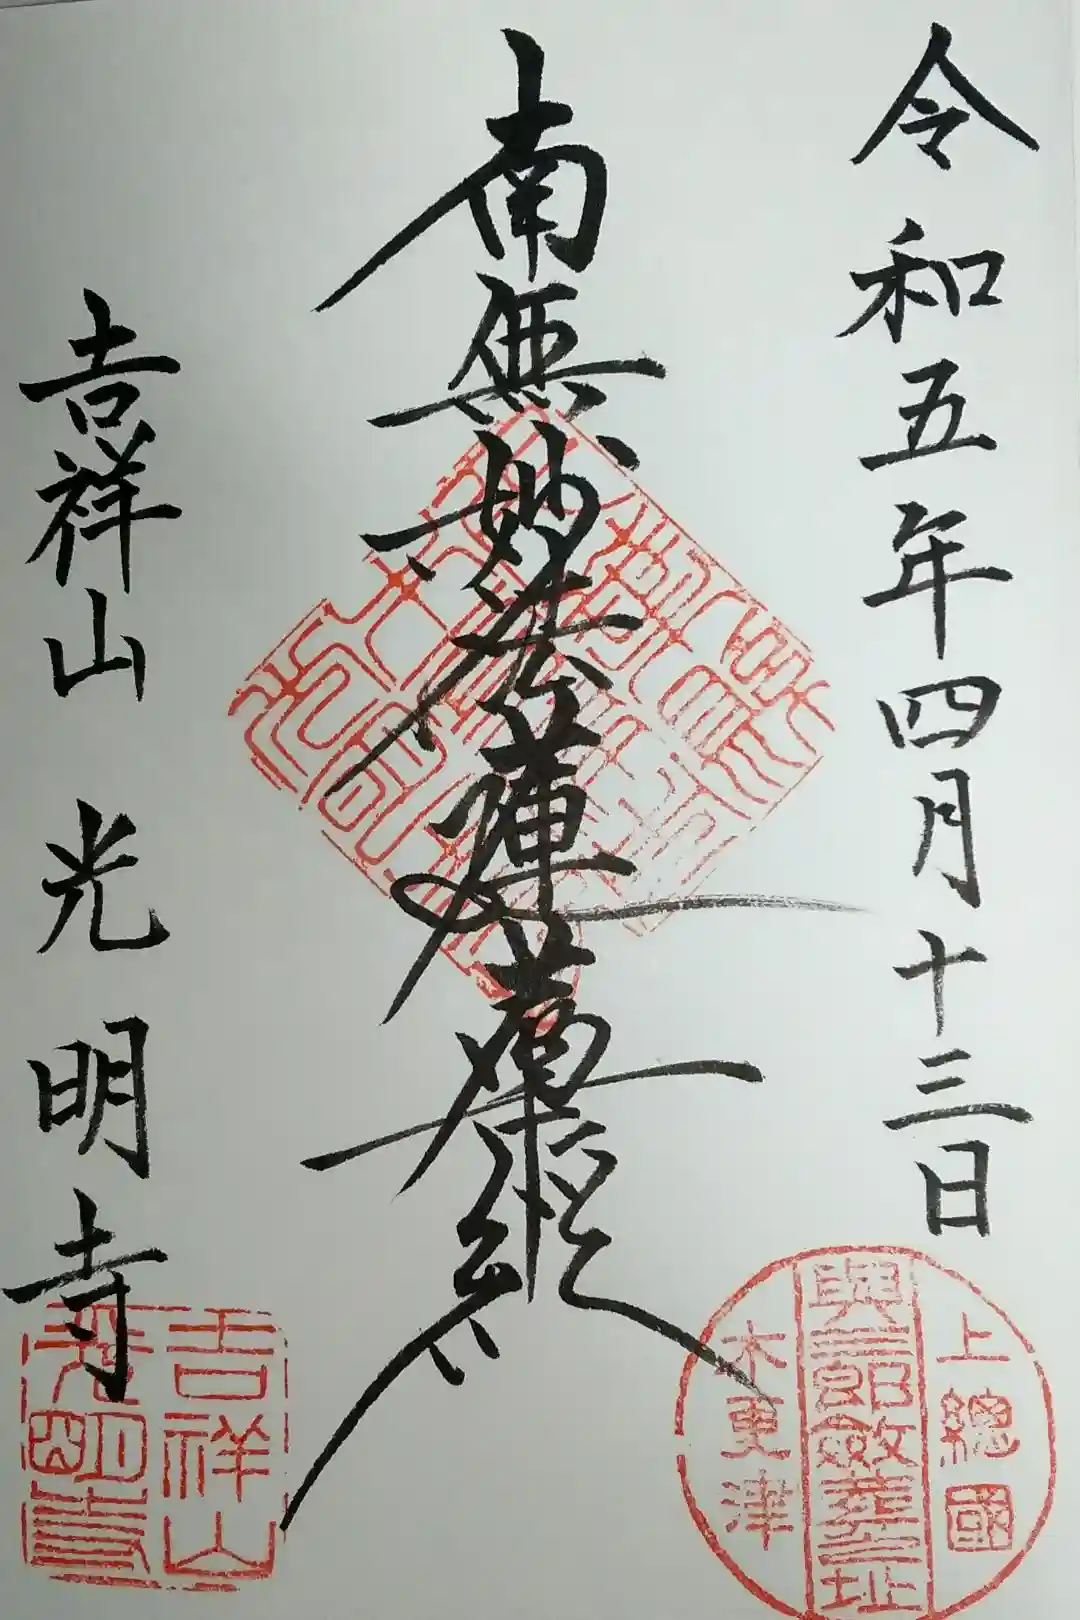 令和五年四月十三日
南無妙法蓮華経
吉祥山 光明寺
上總國
木更津
吉祥山
光明寺